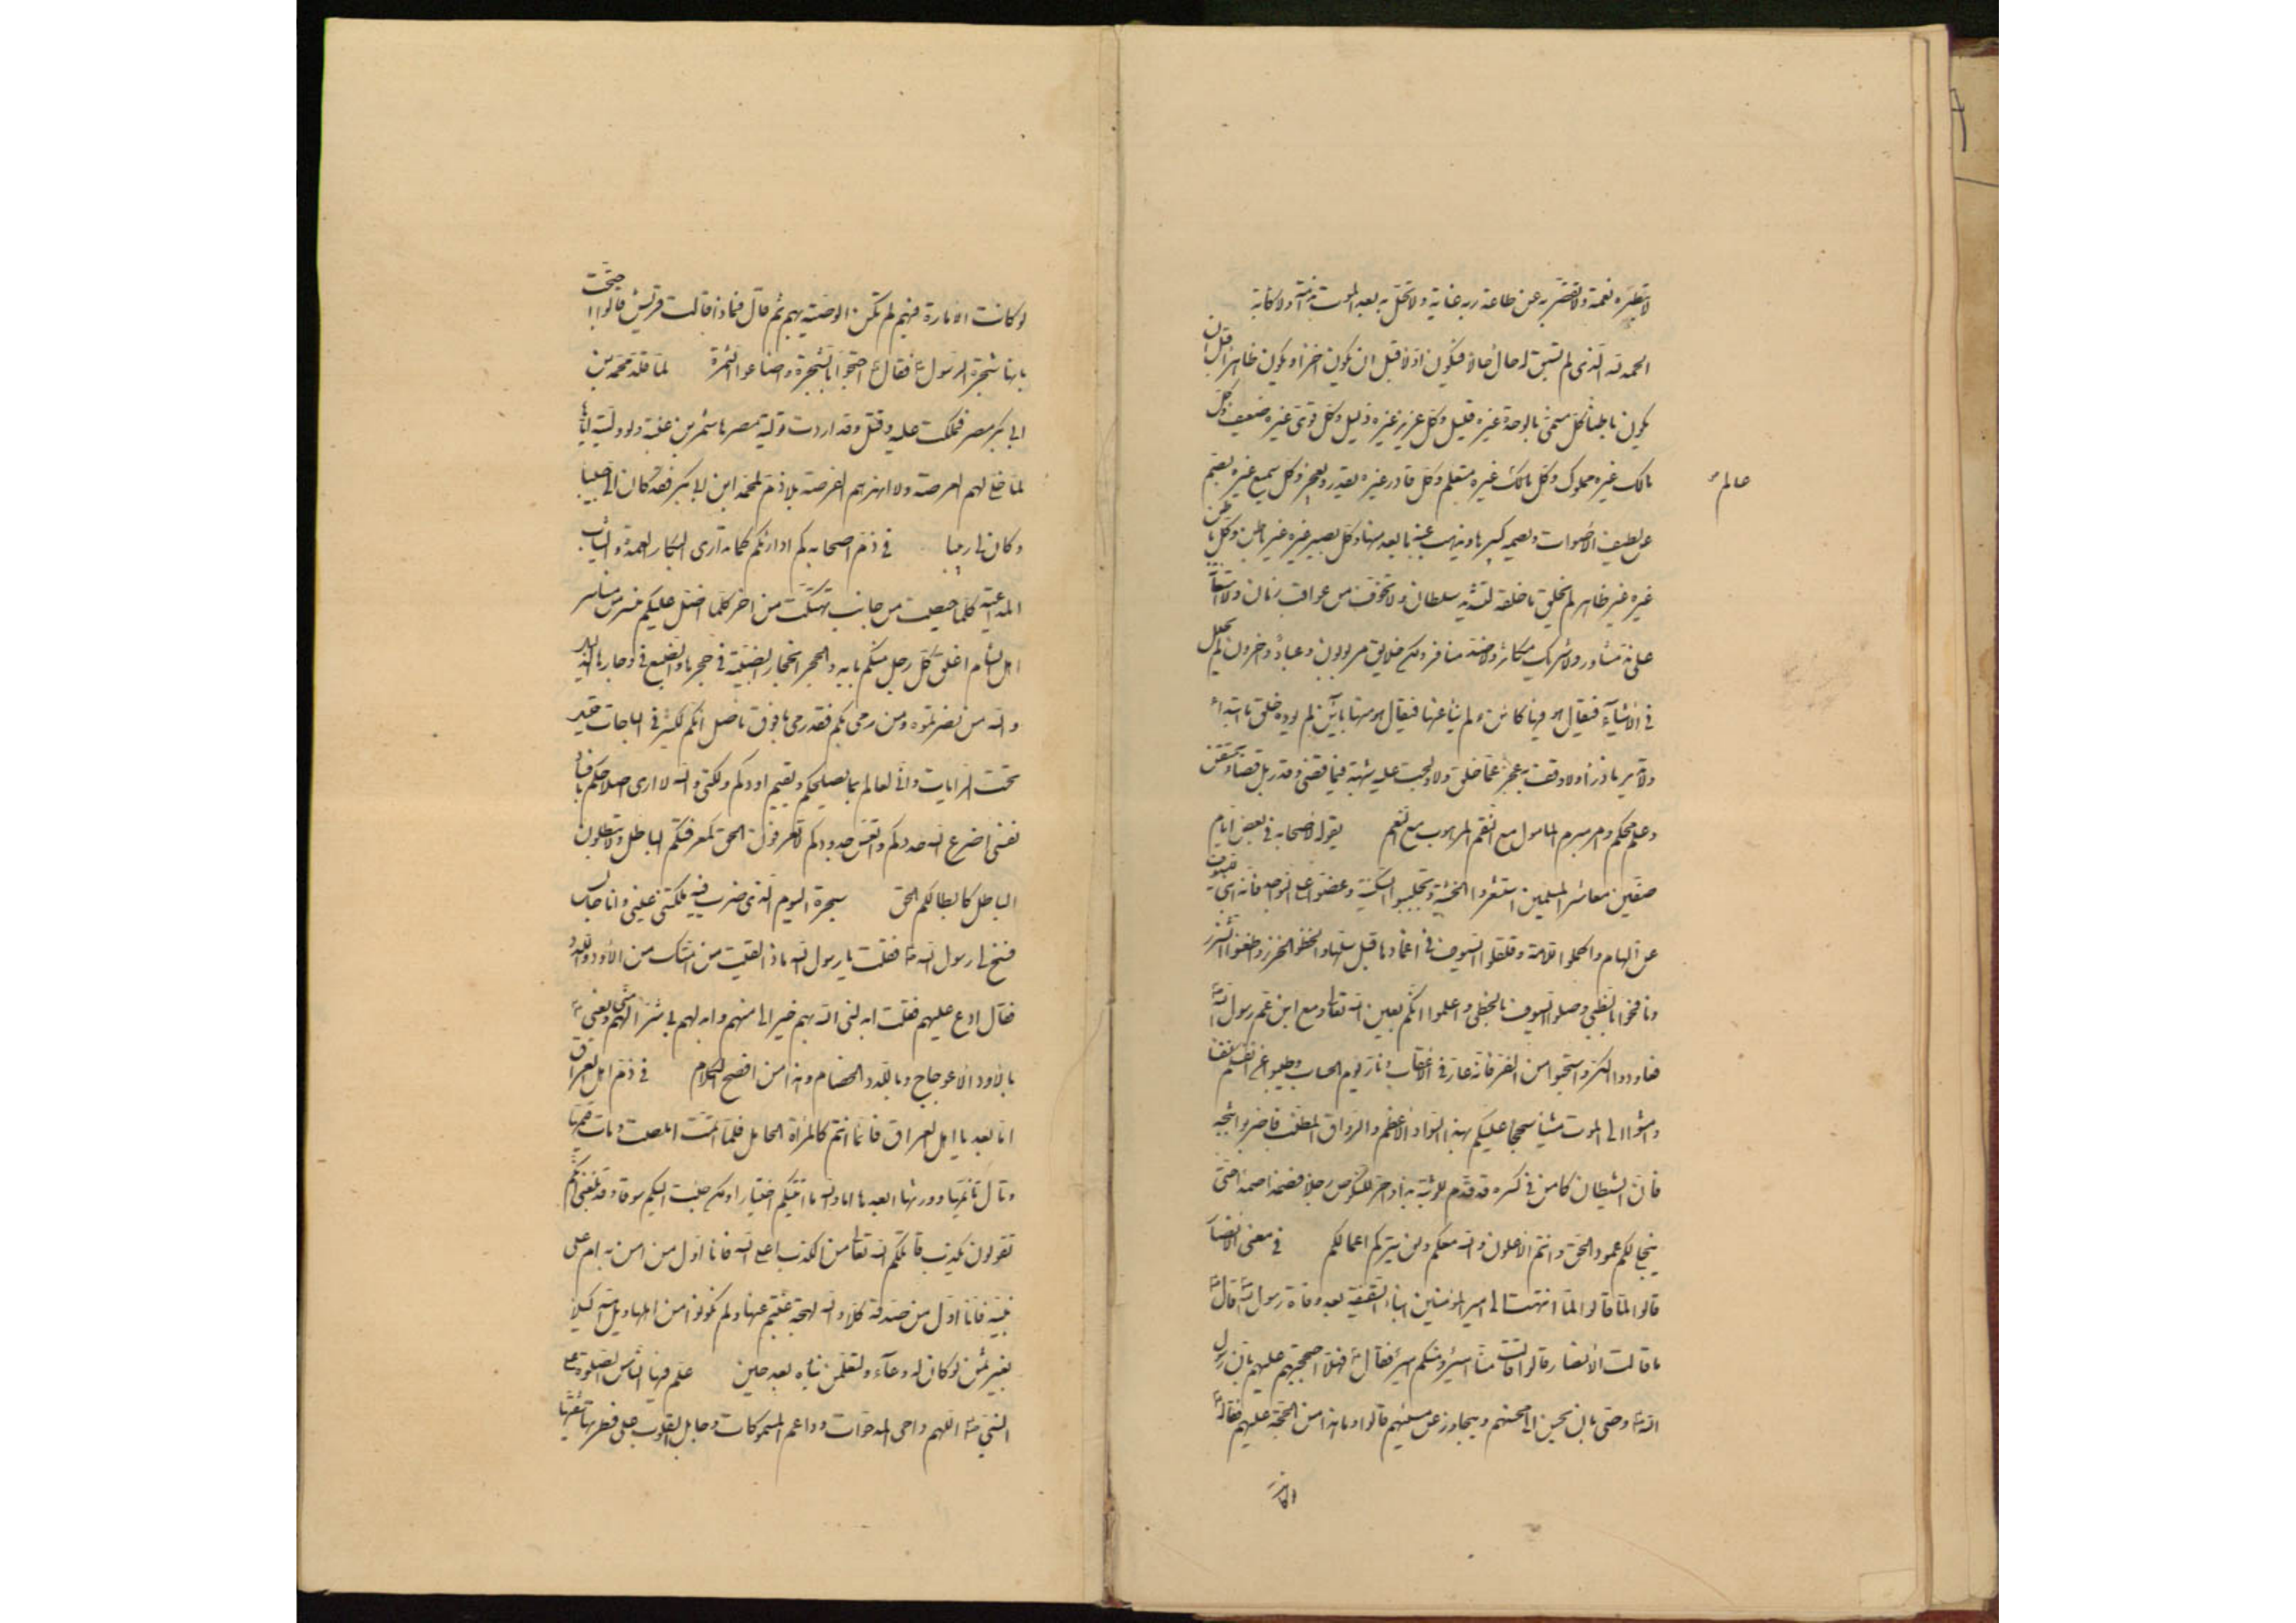 لا تبطره نعمة ولا تقصر به عن طاعة ربه غاية ولا تحل به بعد الموت ندامة ولا كآبة
الحمد لله الذي لم تسبق له حال حالا فيكون اولا قبل ان يكون اخرا ويكون ظاهرا قبل ان
يكون باطنا كل مسمى بالوحدة غيره قليل وكل عزيز غيره ذليل وكل قوي غيره ضعيف وكل
مالك غيره مملوك وكل مالك غيره متعلم وكل قادر غيره يقدر ويعجز وكل سميع غيره يصم
عالم
عن لطيف الاصوات ويصمه كبيرها ويذهب عنه ما بعد منها وكل بصير غيره غير باطن وكل باطن
غيره غير ظاهر لم يخلق ما خلقه لتشديد سلطان ولا تخوف من عواقب زمان ولا استعانة
على ند مثاور ولا شريك مكاثر ولا ضد منافر ولكن خلايق مربوبون وعباد داخرون لم يحلل
في الاشياء فيقال هو فيها كائن ولم ينأ عنها فيقال هو منها بائن لم يؤده خلق ما ابتدأ
ولا تدبير ما ذرأ ولا وقف به عجز عما خلق ولا ولجت عليه شبهة فيما قضى وقدر بل قضاء متقن
وعلم محكم وامر مبرم المأمول مع النقم المرهوب مع النعم يقوله لاصحابه في بعض ايام
صفين معاشر المسلمين استشعروا الخشية وتجلببوا السكينة وعضوا على النواجذ فانه انبى للسيوف
عن الهام واكملوا اللامة وقلقلوا السيوف في اغمادها قبل سلها والحظوا الخزر واطعنوا الشزر
ونافحوا بالظبي وصلوا السيوف بالخطى واعلموا انكم بعين الله تعالى ومع ابن عم رسول الله
فعاودوا الكر واستحيوا من الفر فانه عار في الاعقاب ونار يوم الحساب وطيبوا عن انفسكم نفسا
وامشوا الى الموت مشيا سجحا عليكم بهذا السواد الاعظم والرواق المطنب فاضربوا ثبجه
فان الشيطان كامن في كسره قد قدم للوثبة يدا واخر للنكوص رجلا فصمدا صمدا حتى
ينجلي لكم عمود الحق وانتم الاعلون والله معكم ولن يتركم اعمالكم في معنى الانصار
قالوا لما قالوا لما انتهت الى امير المؤمنين انباء السقيفة بعد وفاة رسول الله قال
ما قالت الانصار قالوا قالت منا امير ومنكم امير فقال فهلا احتججتم عليهم بان رسول
الله وصى بان يحسن الى محسنهم ويتجاوز عن مسيئهم قالوا وما هذا من الحجة عليهم فقال
لو كانت الامارة فيهم لم تكن الوصية بهم ثم قال فماذا قالت قريش قالوا احتجت
بانها شجرة الرسول فقال احتجوا بالشجرة واضاعوا الثمرة لما قلد محمد بن
ابي بكر مصر فملكت عليه وقتل وقد اردت تولية مصر هاشم بن عتبة ولو وليته اياها
لما خلى لهم العرصة ولا انهزهم الفرصة بلا ذم لمحمد ابن ابي بكر فقد كان الي حبيبا
وكان لي ربيبا في ذم اصحابه كم اداريكم كما تدارى البكار العمدة والثياب
المتداعية كلما حيصت من جانب تهتكت من اخر كلما اطل عليكم منسر من مناسر
اهل الشام اغلق كل رجل منكم بابه وانجحر انجحار الضبة في جحرها والضبع في وجارها الذليل
والله من نصرتموه ومن رمى بكم فقد رمى بافوق ناصل انكم لكثير في الباحات قليل
تحت الرايات واني لعالم بما يصلحكم ويقيم اودكم ولكني والله لا ارى اصلاحكم بافساد
نفسي اضرع الله خدودكم واتعس جدودكم لا تعرفون الحق كمعرفتكم الباطل ولا تبطلون
الباطل كابطالكم الحق سحرة اليوم الذي ضرب فيه ملكتني عيني وانا جالس
فسنح لي رسول الله فقلت يا رسول الله ماذا لقيت من امتك من الاود واللدد
فقال ادع عليهم فقلت ابدلني الله بهم خيرا لي منهم وابدلهم بي شرا لهم مني يعني
بالاود الاعوجاج وباللدد الخصام وهذا من افصح الكلام في ذم اهل العراق
اما بعد يا اهل العراق فانما انتم كالمرأة الحامل فلما اتمت املصت ومات قيمها
وطال تأيمها وورثها ابعدها اما والله ما اتيتكم اختيارا ولكن جئت اليكم سوقا وقد بلغني انكم
تقولون يكذب قاتلكم الله تعالى فعلى من اكذب اعلى الله فانا اول من امن به ام على
نبيه فانا اول من صدقه كلا والله لهجة غبتم عنها ولم تكونوا من اهلها ويل امه كيلا
بغير ثمن لو كان له وعاء ولتعلمن نبأه بعد حين علم فيها الناس الصلوة على
النبي اللهم داحي المدحوات وداعم المسموكات وجابل القلوب على فطرتها شقيها